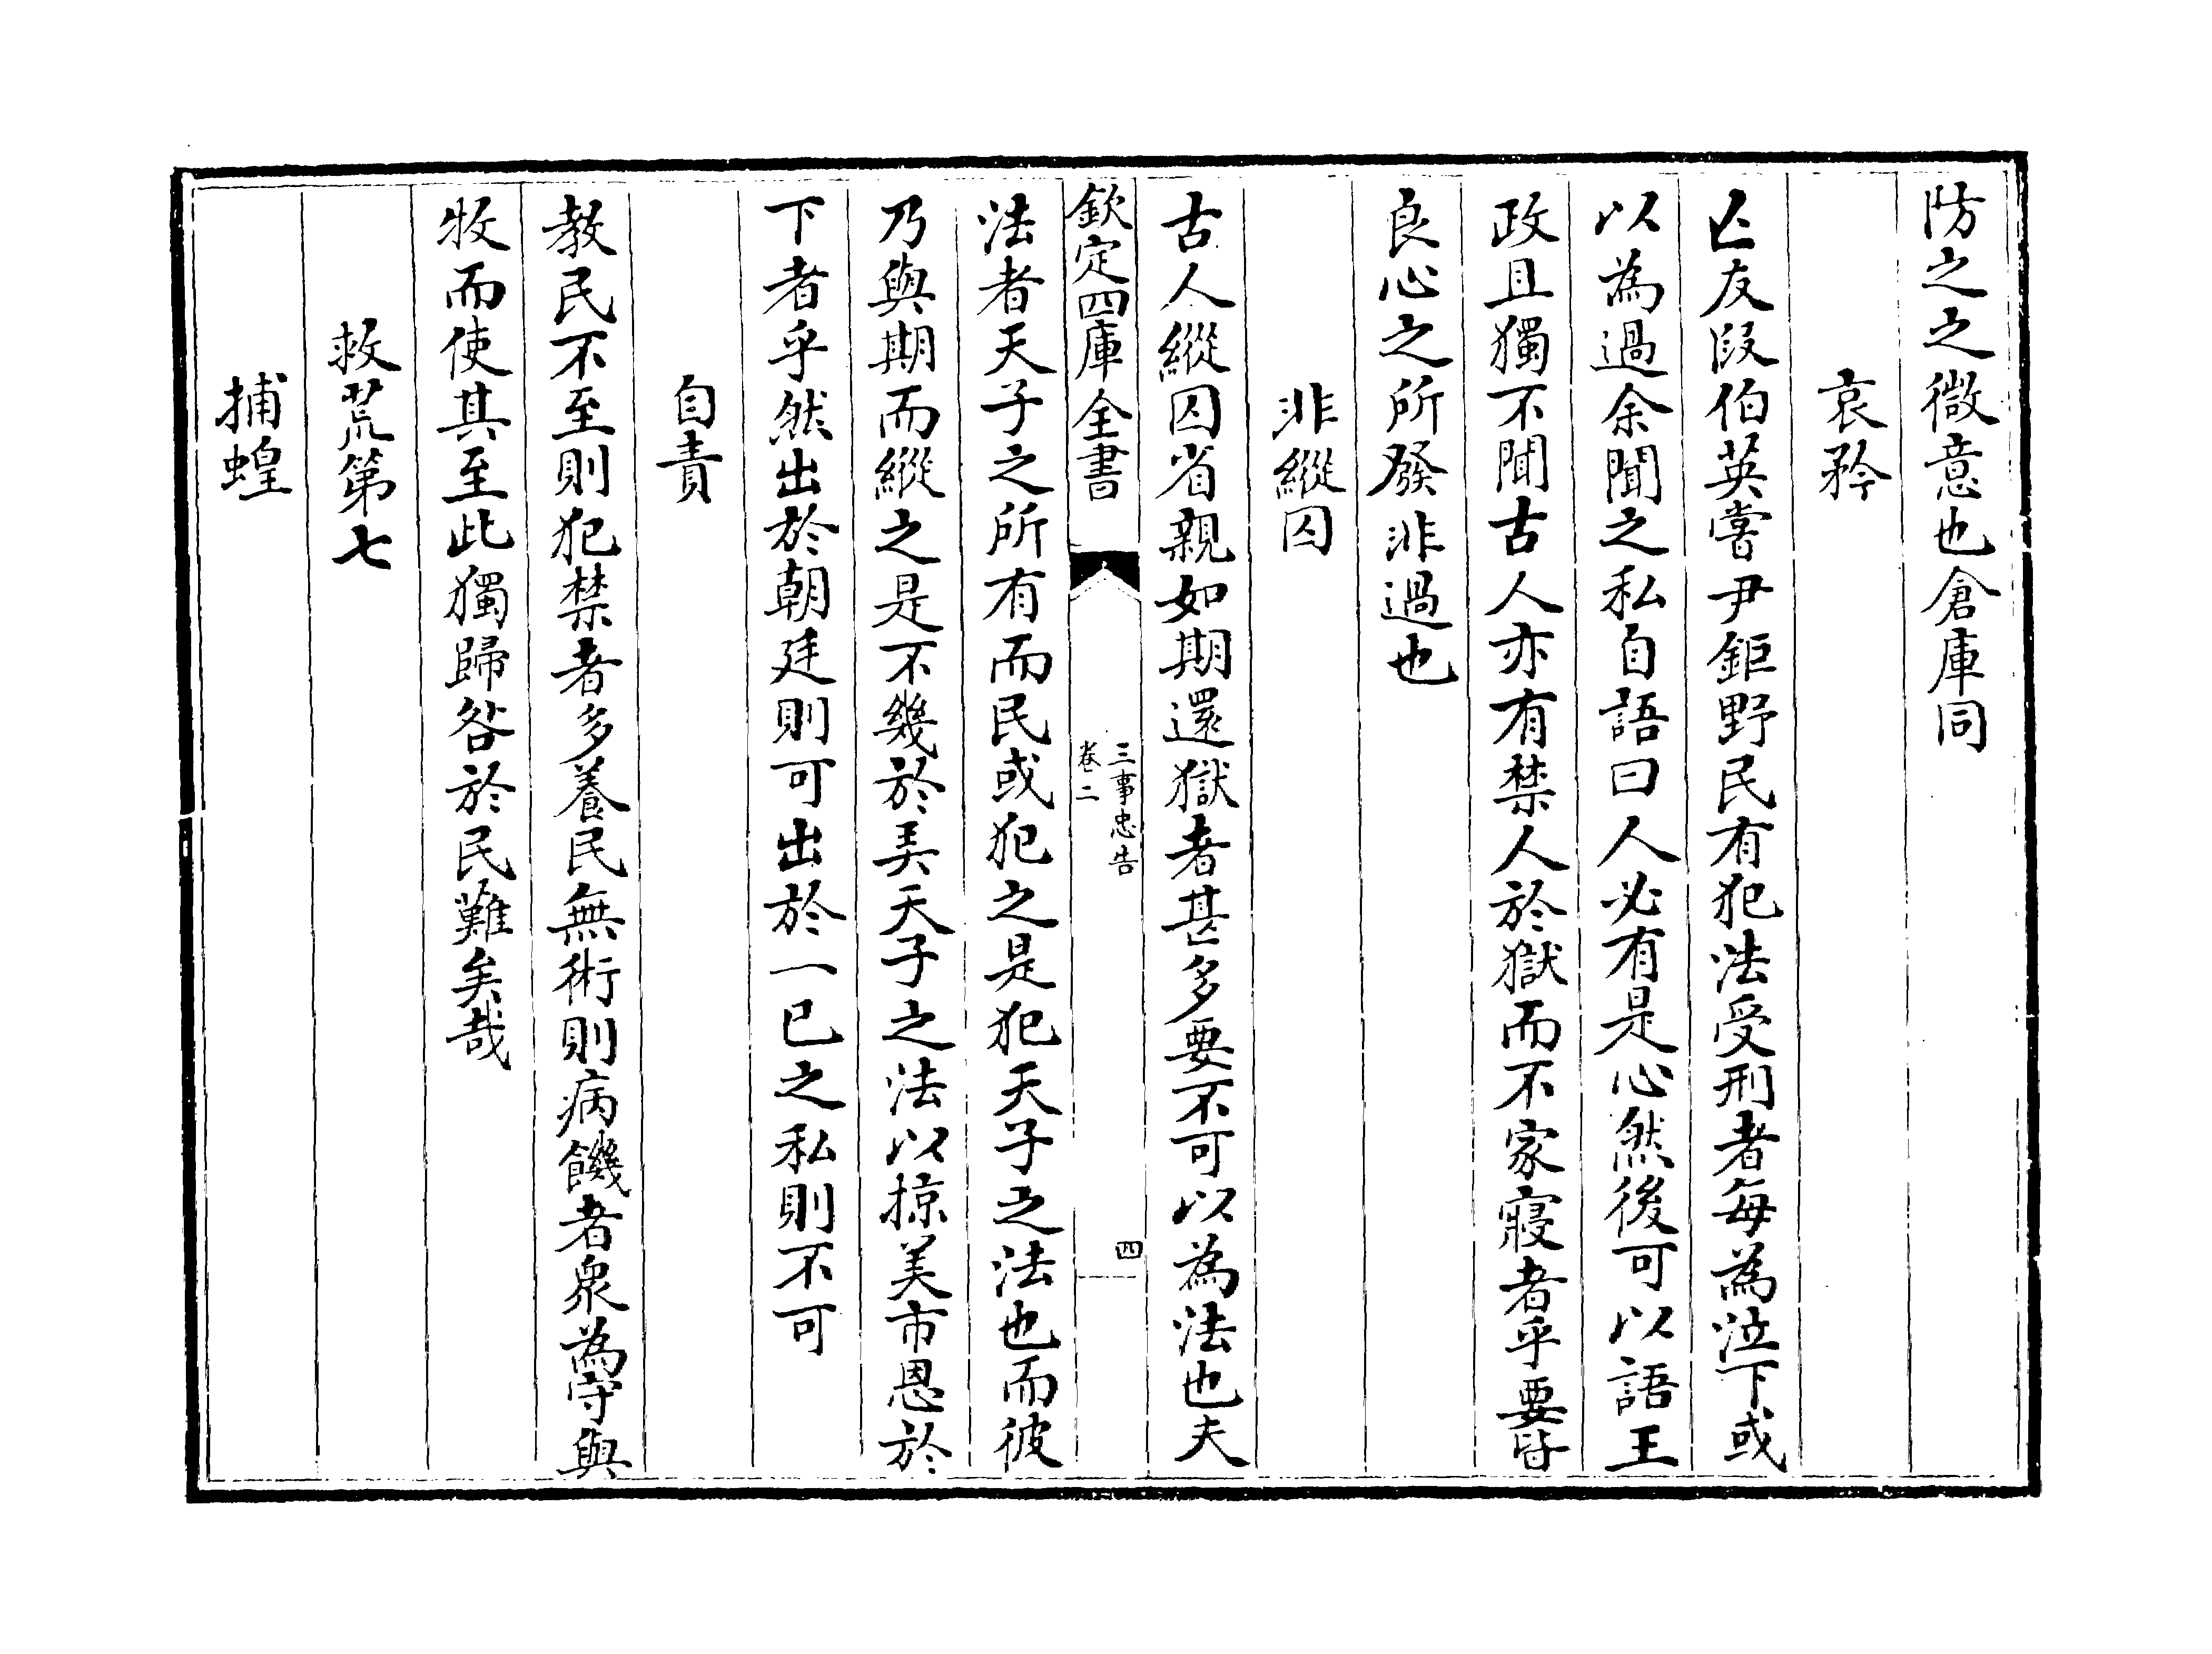 防之之微意也倉庫同
哀矜
亡友段伯英嘗尹鉅野民有犯法受刑者每為泣下或
以為過余聞之私自語曰人必有是心然後可以語王
政且獨不聞古人亦有禁人於獄而不家寢者乎要皆
良心之所發非過也
非縱囚
古人縱囚省親如期還獄者甚多要不可以為法也夫
欽定四庫全書
三事忠告
卷二
四
法者天子之所有而民或犯之是犯天子之法也而彼
乃與期而縱之是不幾於弄天子之法以掠美市恩於
下者乎然出於朝廷則可出於一已之私則不可
自責
教民不至則犯禁者多養民無術則病饑者衆為守與
牧而使其至此獨歸咎於民難矣哉
救荒第七
捕蝗